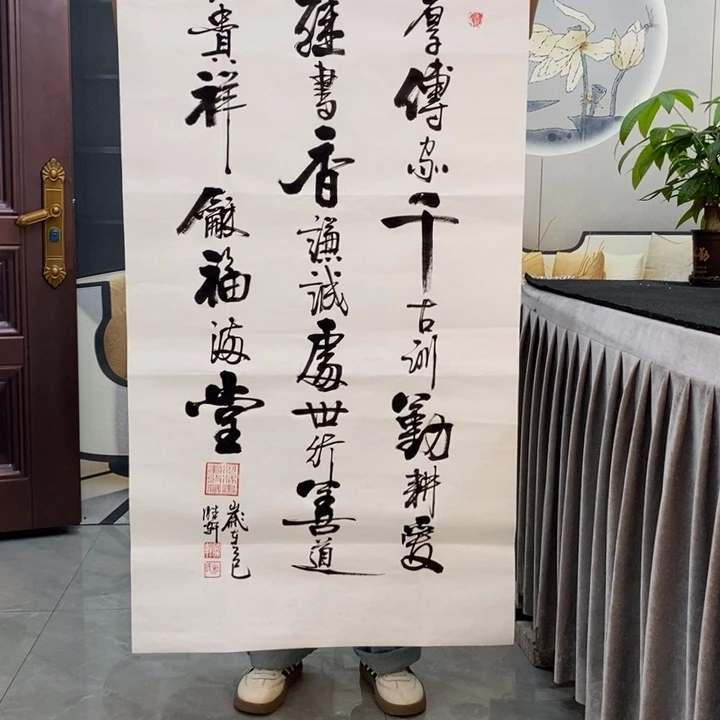 厚傳家千古訓勤耕愛
書香謙誠處世行善道
貴祥龢福滿堂
歲在乙巳